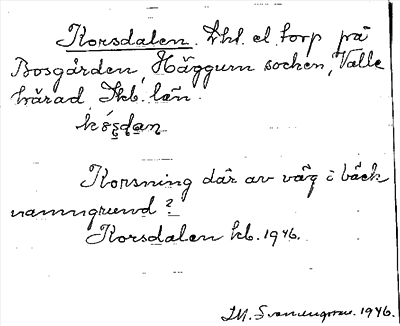 Korsdalen. Lhl. el. torp på
Bosgården, Häggum socken, Valle
härad, Skb. län.
Korsning där av väg i bäck
namngrund?
Korsdalen kb. 1946.
1946.